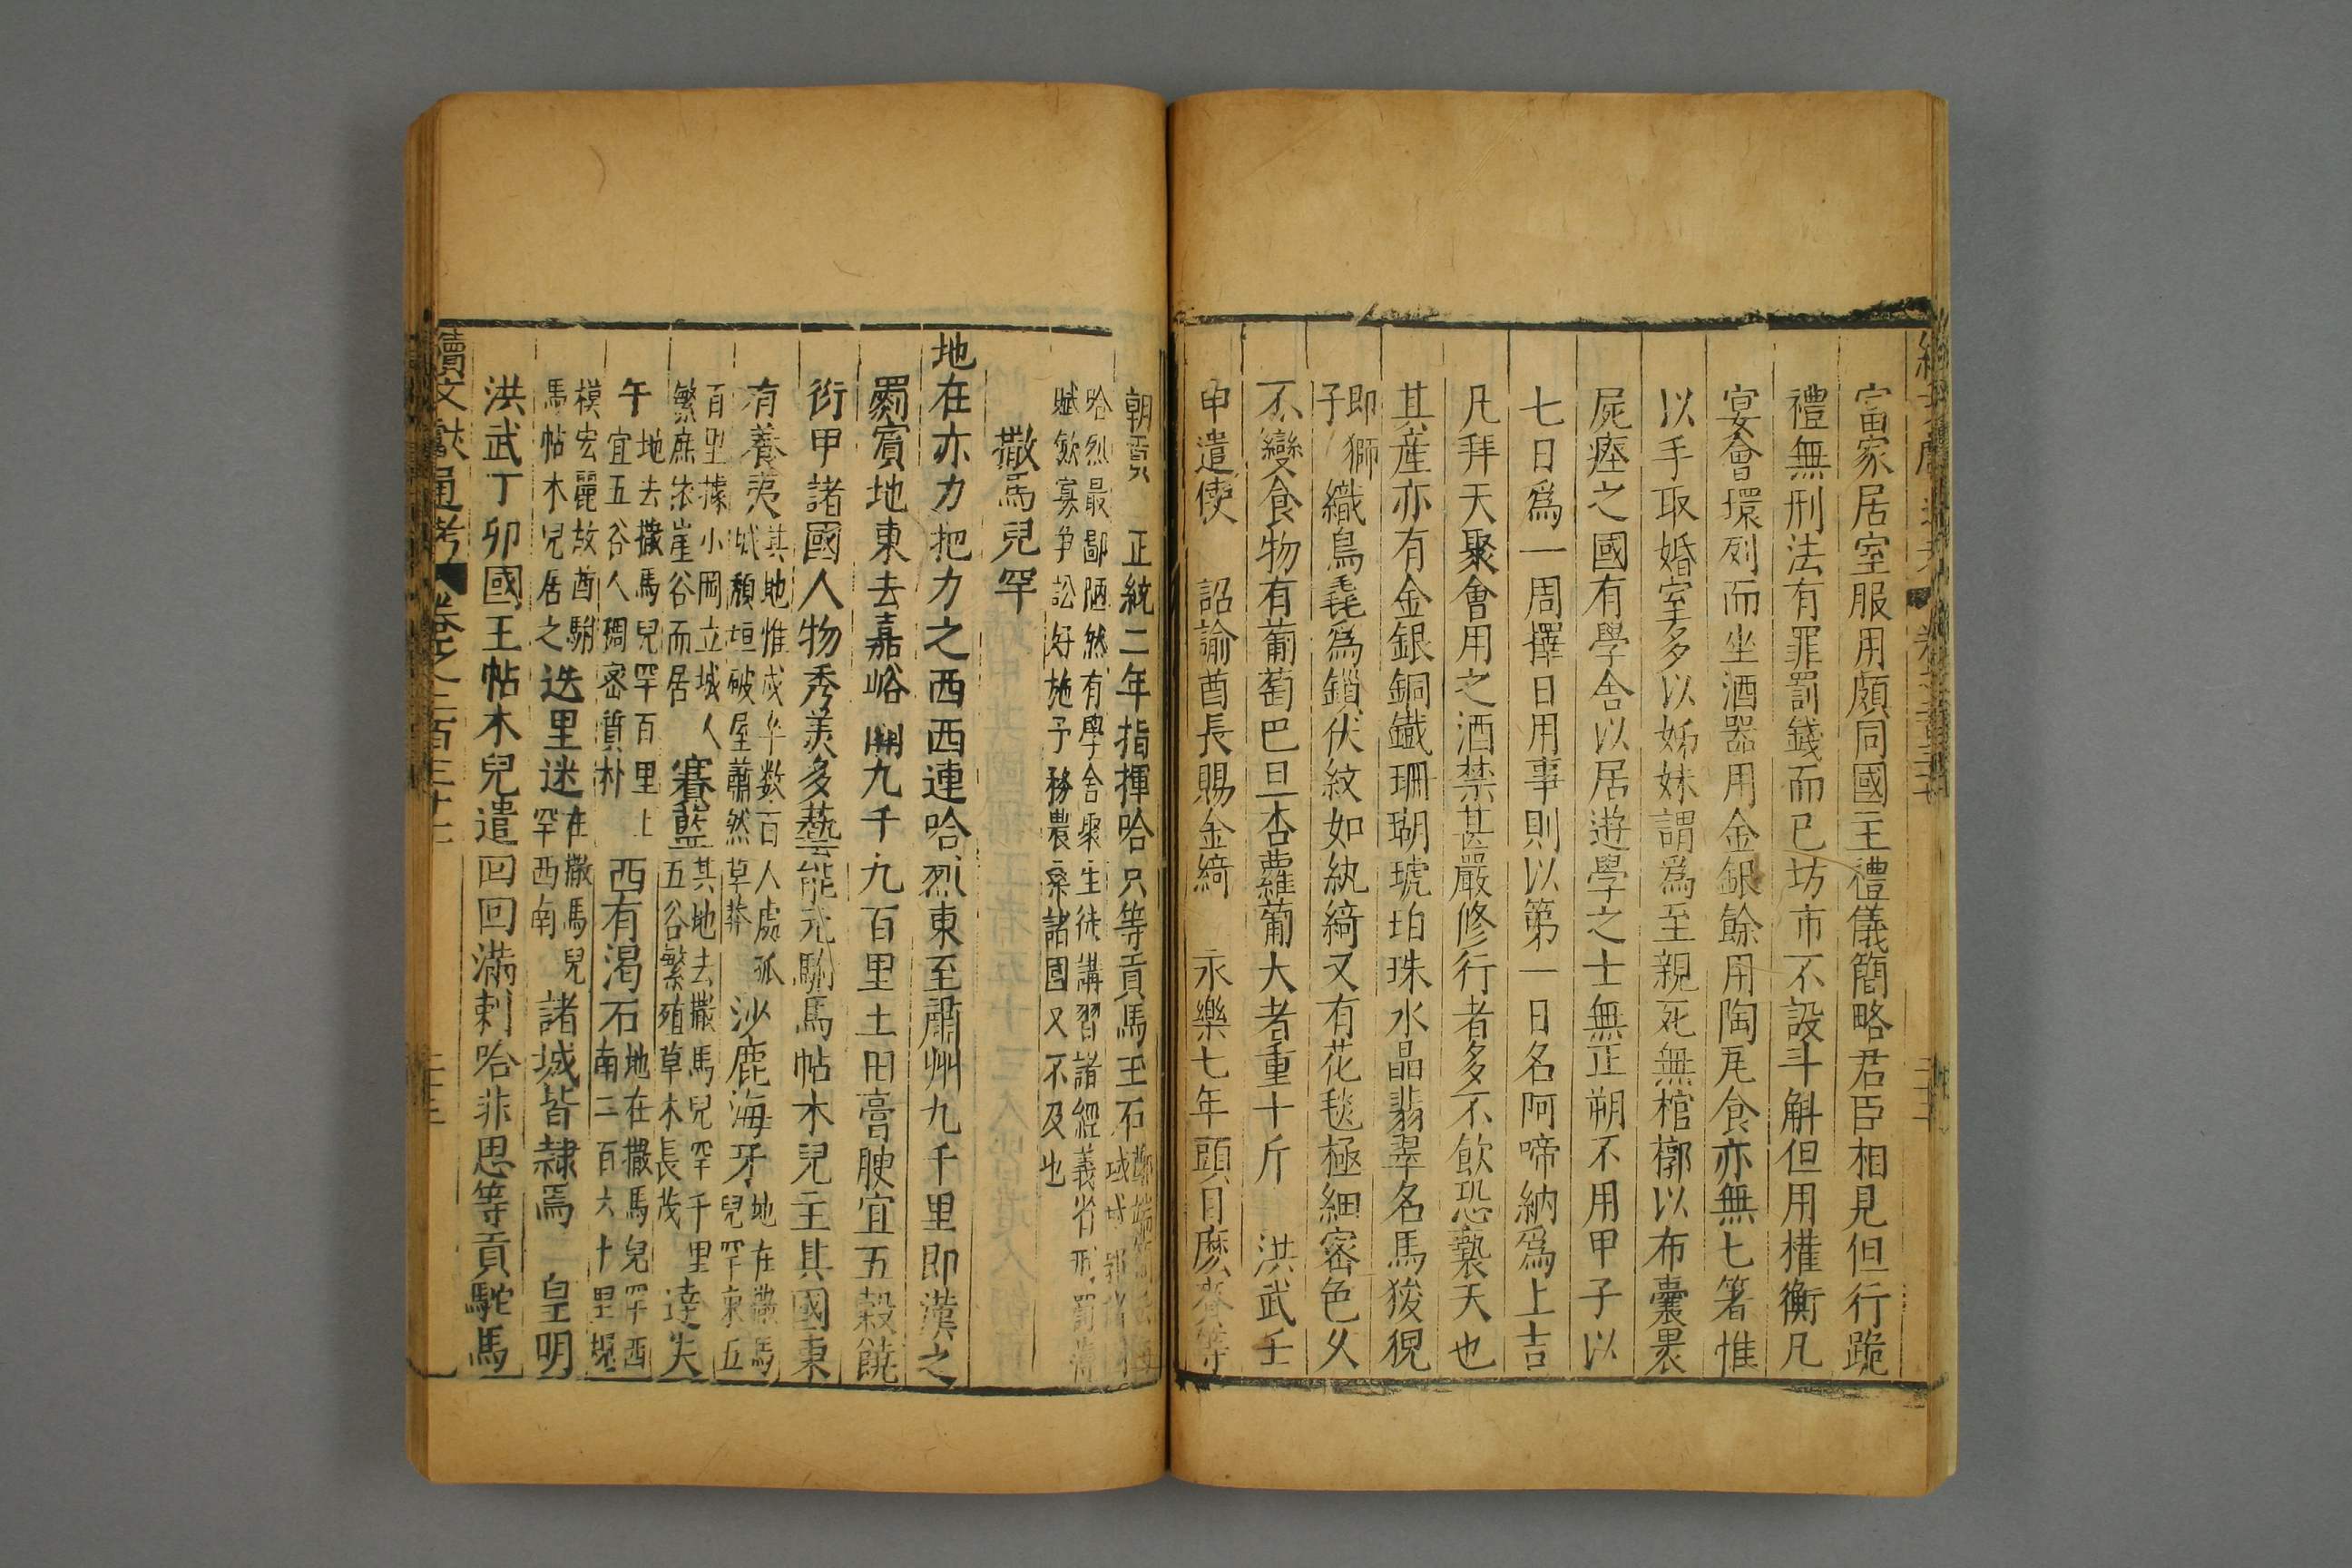 富家居室服用頗同國王禮儀簡略君臣相見但行跪
禮無刑法有罪罰錢而已坊市不設斗斛但用權衡凡
宴會環列而坐酒器用金銀餘用陶瓦食亦無七箸惟
以手取婚室多以姊妹謂爲至親死無棺槨以布囊裹
屍瘞之國有學舍以居遊學之士無正朔不用甲子以
七日爲一周擇日用事則以第一日名阿啼納爲上吉
凡拜天聚會用之酒禁甚嚴修行者多不飲恐褻天也
其産亦有金銀銅鐵珊瑚琥珀珠水晶翡翠名馬狻猊
即獅子織鳥毳爲鎖伏紋如紈綺又有花毯極細密色久
不變食物有葡萄巴旦杏蘿蔔大者重十斤 洪武壬
申遣使 詔諭酋長賜金綺 永樂七年頭目麽賚等
朝貢 正統二年指揮哈只等貢馬玉石
哈烈最鄙陋然有學舍聚生徒講習諸經義省刑罰薄
賦歛寡爭訟好施予務農桒諸國又不及也
撒馬兒罕
地在亦力把力之西西連哈烈東至肅州九千里即漢之
罽賓地東去嘉峪關九千九百里土田膏腴宜五穀饒
衍甲諸國人物秀美多藝能元駙馬帖木兒主其國東
有養夷其地惟戍卒数百人處孤城頹垣破屋蕭然草莽 沙鹿海牙地在撒馬兒罕東五
百里據小岡立城人繁庶依崖谷而居 賽藍其地去撒馬兒罕千里五谷繁殖草木長茂 逹失
午地去撒馬兒罕百里上宜五谷人稠密質朴 西有渴石地在撒馬兒罕西南三百六十里規
模宏麗故酋駙馬帖木兒居之迭里迷在撒馬兒罕西南諸城皆隷焉 皇明
洪武丁卯國王帖木兒遣回回滿剌哈非思等貢駝馬
續文獻通考 卷之二百三十七